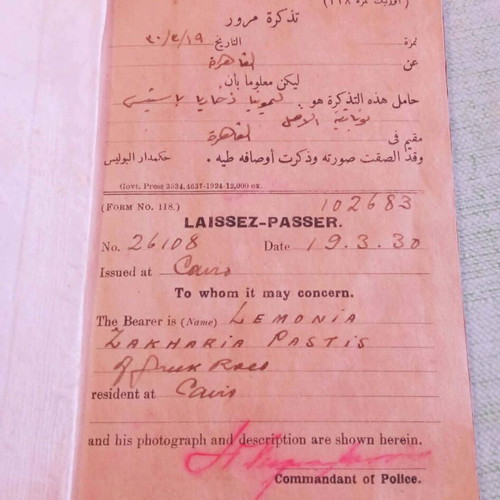 (اورنيك نمرة ١١٨)
تذكرة مرور
نمرة التاريخ ٣٠/٣/١٩
عن القاهرة
ليكن معلوما بأن
حامل هذه التذكرة هو . ليمونيا زخاريا باستيس
يونانية الاصل
مقيم فى القاهرة
وقد الصقت صورته وذكرت أوصافه طيه . حكمدار البوليس
Govt. Press 3934,4637-1924-12,000 ex.
(FORM No. 118.) 102683
LAISSEZ-PASSER.
No. 26108 Date 19.3.30
Issued at Cairo
To whom it may concern.
The Bearer is (Name) LEMONIA
ZAKHARIA PASTIS
of Greek Race
resident at Cairo
and his photograph and description are shown herein.
Commandant of Police.